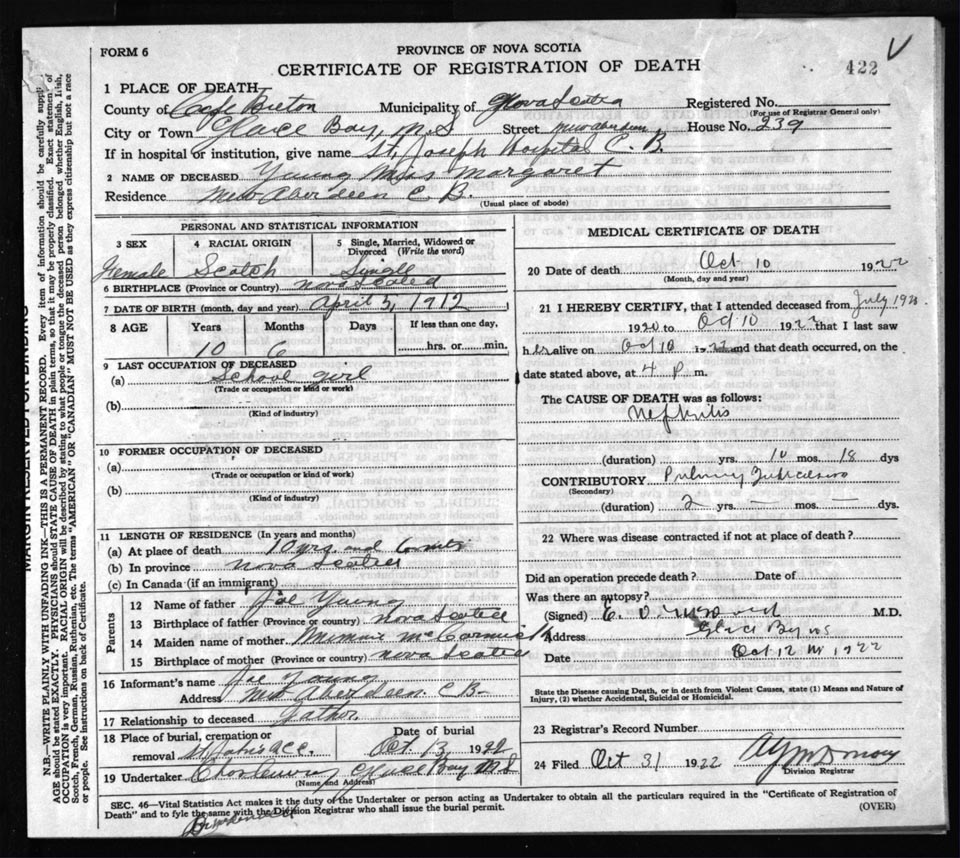 FORM 6
PROVINCE OF NOVA SCOTIA
CERTIFICATE OF REGISTRATION OF DEATH
422
1 PLACE OF DEATH
County of Cape Breton Municipality of Nova Scotia Registered No.
(For use of Registrar General only)
City or Town Glace Bay, N.S Street New Aberdeen House No. 239
If in hospital or institution, give name St. Joseph Hospital C. B.
2 NAME OF DECEASED Young Miss Margaret
Residence New Aberdeen C B.
(Usual place of abode)
PERSONAL AND STATISTICAL INFORMATION
3 SEX 4 RACIAL ORIGIN 5 Single, Married, Widowed or Divorced (Write the word)
Female Scotch Single
6 BIRTHPLACE (Province or Country) Nova Scotia
7 DATE OF BIRTH (month, day and year) April 3, 1912
8 AGE Years Months Days If less than one day,
10 6 hrs. or min.
9 LAST OCCUPATION OF DECEASED
(a) School girl
(Trade or occupation or kind or work)
(b)
(Kind of industry)
10 FORMER OCCUPATION OF DECEASED
(a)
(Trade or occupation or kind of work)
(b)
(Kind of industry)
11 LENGTH OF RESIDENCE (In years and months)
(a) At place of death 10 yrs and 6 months
(b) In province Nova Scotia
(c) In Canada (if an immigrant)
Parents
12 Name of father Joe Young
13 Birthplace of father (Province or country) Nova Scotia
14 Maiden name of mother Minnie McCormick
15 Birthplace of mother (Province or country) Nova Scotia
16 Informant's name Joe Young
Address New Aberdeen. C B-
17 Relationship to deceased father.
18 Place of burial, cremation or removal Date of burial
St John's Oct. 13, 1922
19 Undertaker Glace Bay N S
(Name and Address)
MEDICAL CERTIFICATE OF DEATH
20 Date of death Oct 10 1922
(Month, day and year)
21 I HEREBY CERTIFY, that I attended deceased from July
1920 to Oct 10 1922 that I last saw
her alive on Oct 10 1922 and that death occurred, on the
date stated above, at 4 P. m.
The CAUSE OF DEATH was as follows:
Nephritis
(duration) yrs. 10 mos. 18 dys
CONTRIBUTORY Pulmonary Tuberculosis
(Secondary)
(duration) 2 yrs. — mos. — dys.
22 Where was disease contracted if not at place of death?
Did an operation precede death? Date of
Was there an autopsy?
(Signed) E. O. M.D.
Address Glace Bay NS
Date Oct 12 1922
State the Disease causing Death, or in death from Violent Causes, state (1) Means and Nature of Injury, (2) whether Accidental, Suicidal or Homicidal.
23 Registrar's Record Number
24 Filed Oct 31 1922
Division Registrar
SEC. 46—Vital Statistics Act makes it the duty of the Undertaker or person acting as Undertaker to obtain all the particulars required in the "Certificate of Registration of
Death" and to fyle the same with the Division Registrar who shall issue the burial permit.
(OVER)
MARGIN RESERVED FOR BINDING
N.B.—WRITE PLAINLY WITH UNFADING INK—THIS IS A PERMANENT RECORD. Every item of information should be carefully supplied.
AGE should be stated EXACTLY. PHYSICIANS should STATE CAUSE OF DEATH in plain terms, so that it may be properly classified. Exact statement of
OCCUPATION is very important. RACIAL ORIGIN will be described by stating to what people or tongue the deceased person belonged whether English, Irish,
Scotch, French, German, Russian, Ruthenian, etc. The terms "AMERICAN" OR "CANADIAN" MUST NOT BE USED as they express citizenship but not a race
or people. See instructions on back of Certificate.